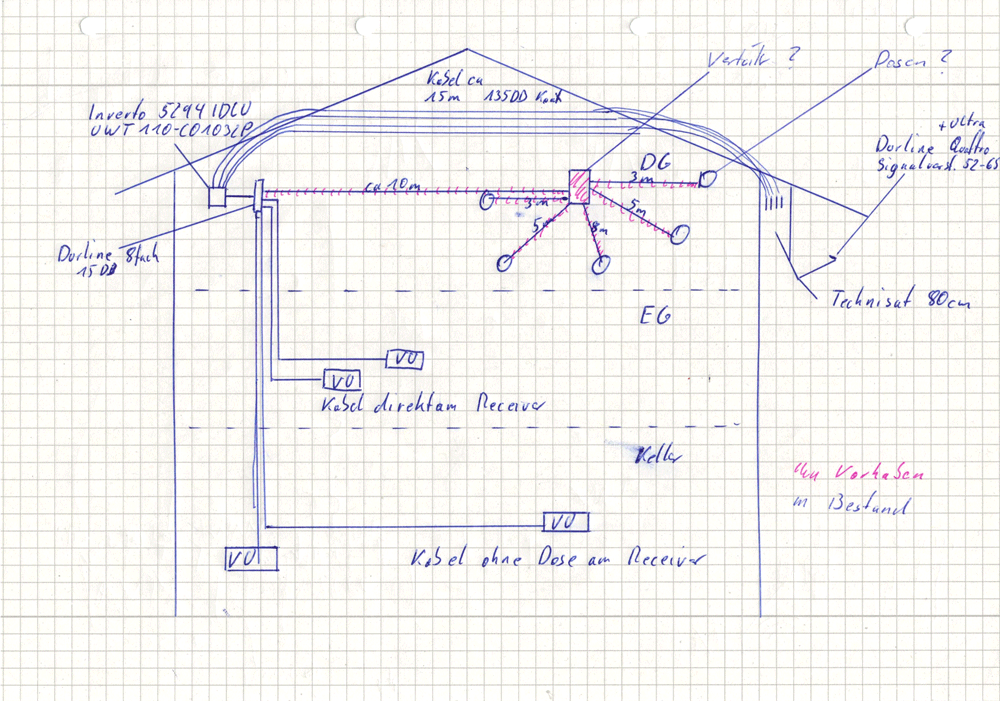 Verteiler ?
Dosen ?
Kabel ca
15m 135DD Koax
Inverto 5294 IDLU
UWT 110-CU103LP
+ Ultra
Dorline Quattro
Signalverst. 52-65
DG
ca 10m
3m
3m
5m
5m
8m
Dorline 8fach
15DD
Technisat 80cm
EG
VU
VU
Kabel direkt am Receiver
Keller
Vorhaben
Bestand
VU
VU
Kabel ohne Dose am Receiver